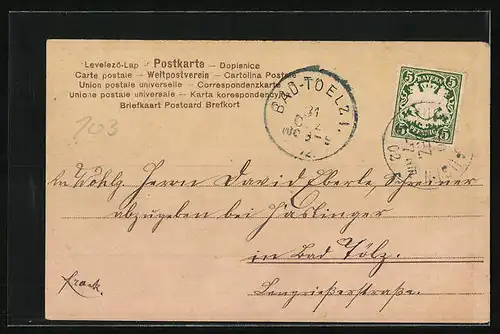 Levelező-Lap — Postkarte — Dopisnice
Carte postale — Weltpostverein — Cartolina Postale
Union postale universelle — Correspondenzkarte
Unione postale universale — Karta korespondencyjna
Briefkaart Postcard Brefkort
BAYERN
5 5
5 5
PFENNIG
BAD-TOELZ I.
31
103
Wohlg. Herrn David Eberle, Schreiner
abzugeben bei Haslinger
in Bad Tölz.
Lenggrießerstraße.
Frank.